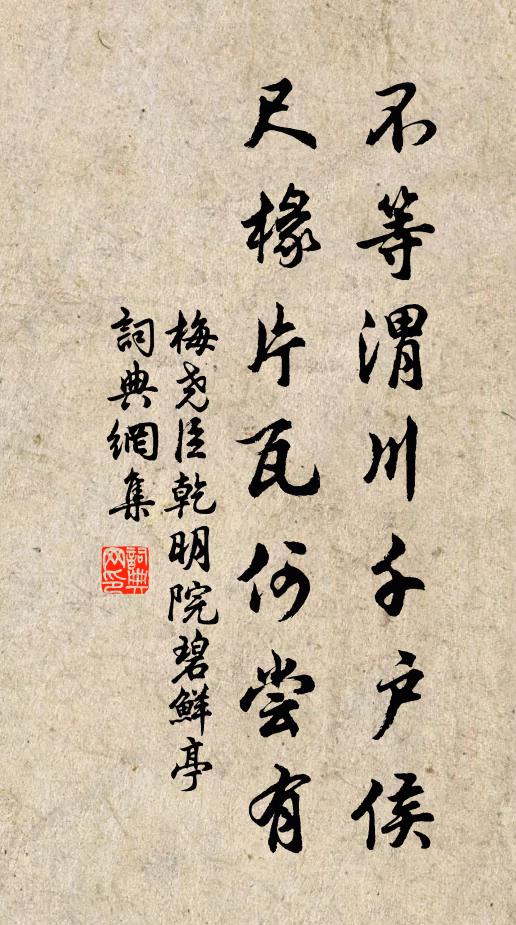 不等渭川千户侯
尺椽片瓦何尝有
梅尧臣乾明院碧鮮亭
詞典網集
詞典网印